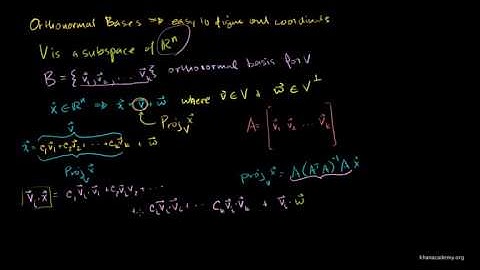 Orthonormal Bases ⇒ easy to figure out coordinates
V is a subspace of ℝⁿ
B = {v⃗₁, v⃗₂, ... v⃗ₖ} orthonormal basis for V
x⃗ ∈ ℝⁿ ⇒ x⃗ = v⃗ + w⃗ where v⃗ ∈ V + w⃗ ∈ V⊥
Proj_V x⃗
A = [v⃗₁ v⃗₂ ... v⃗ₖ]
v⃗
x⃗ = c₁v⃗₁ + c₂v⃗₂ + ... + cₖv⃗ₖ + w⃗
Proj_V x⃗
proj_V x⃗ = A(AᵀA)⁻¹A x⃗
v⃗ᵢ · x⃗ = c₁v⃗ᵢ·v⃗₁ + c₂v⃗ᵢv⃗₂ + ...
+ cᵢv⃗ᵢ·v⃗ᵢ + ... cₖv⃗ᵢ·v⃗ₖ + v⃗ᵢ·w⃗
khanacademy.org